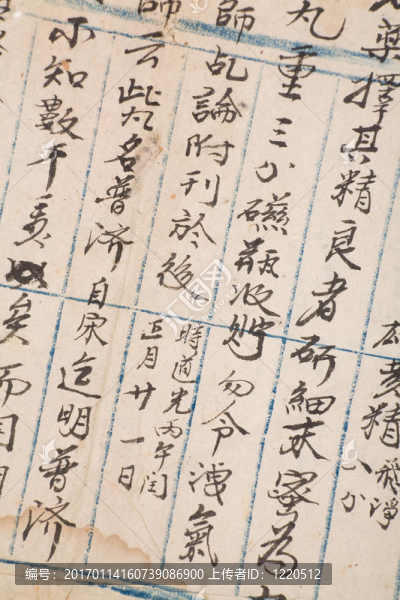 黃精
藥擇其精良者研細末蜜為
丸重三分礠瓶收貯勿令洩氣
師乩論附刊於後
時道光丙午閏
正月廿一日
師云此丸名普济自宋迄明普济
不知數千
矣而
编号:20170114160739086900 上传者ID:1220512